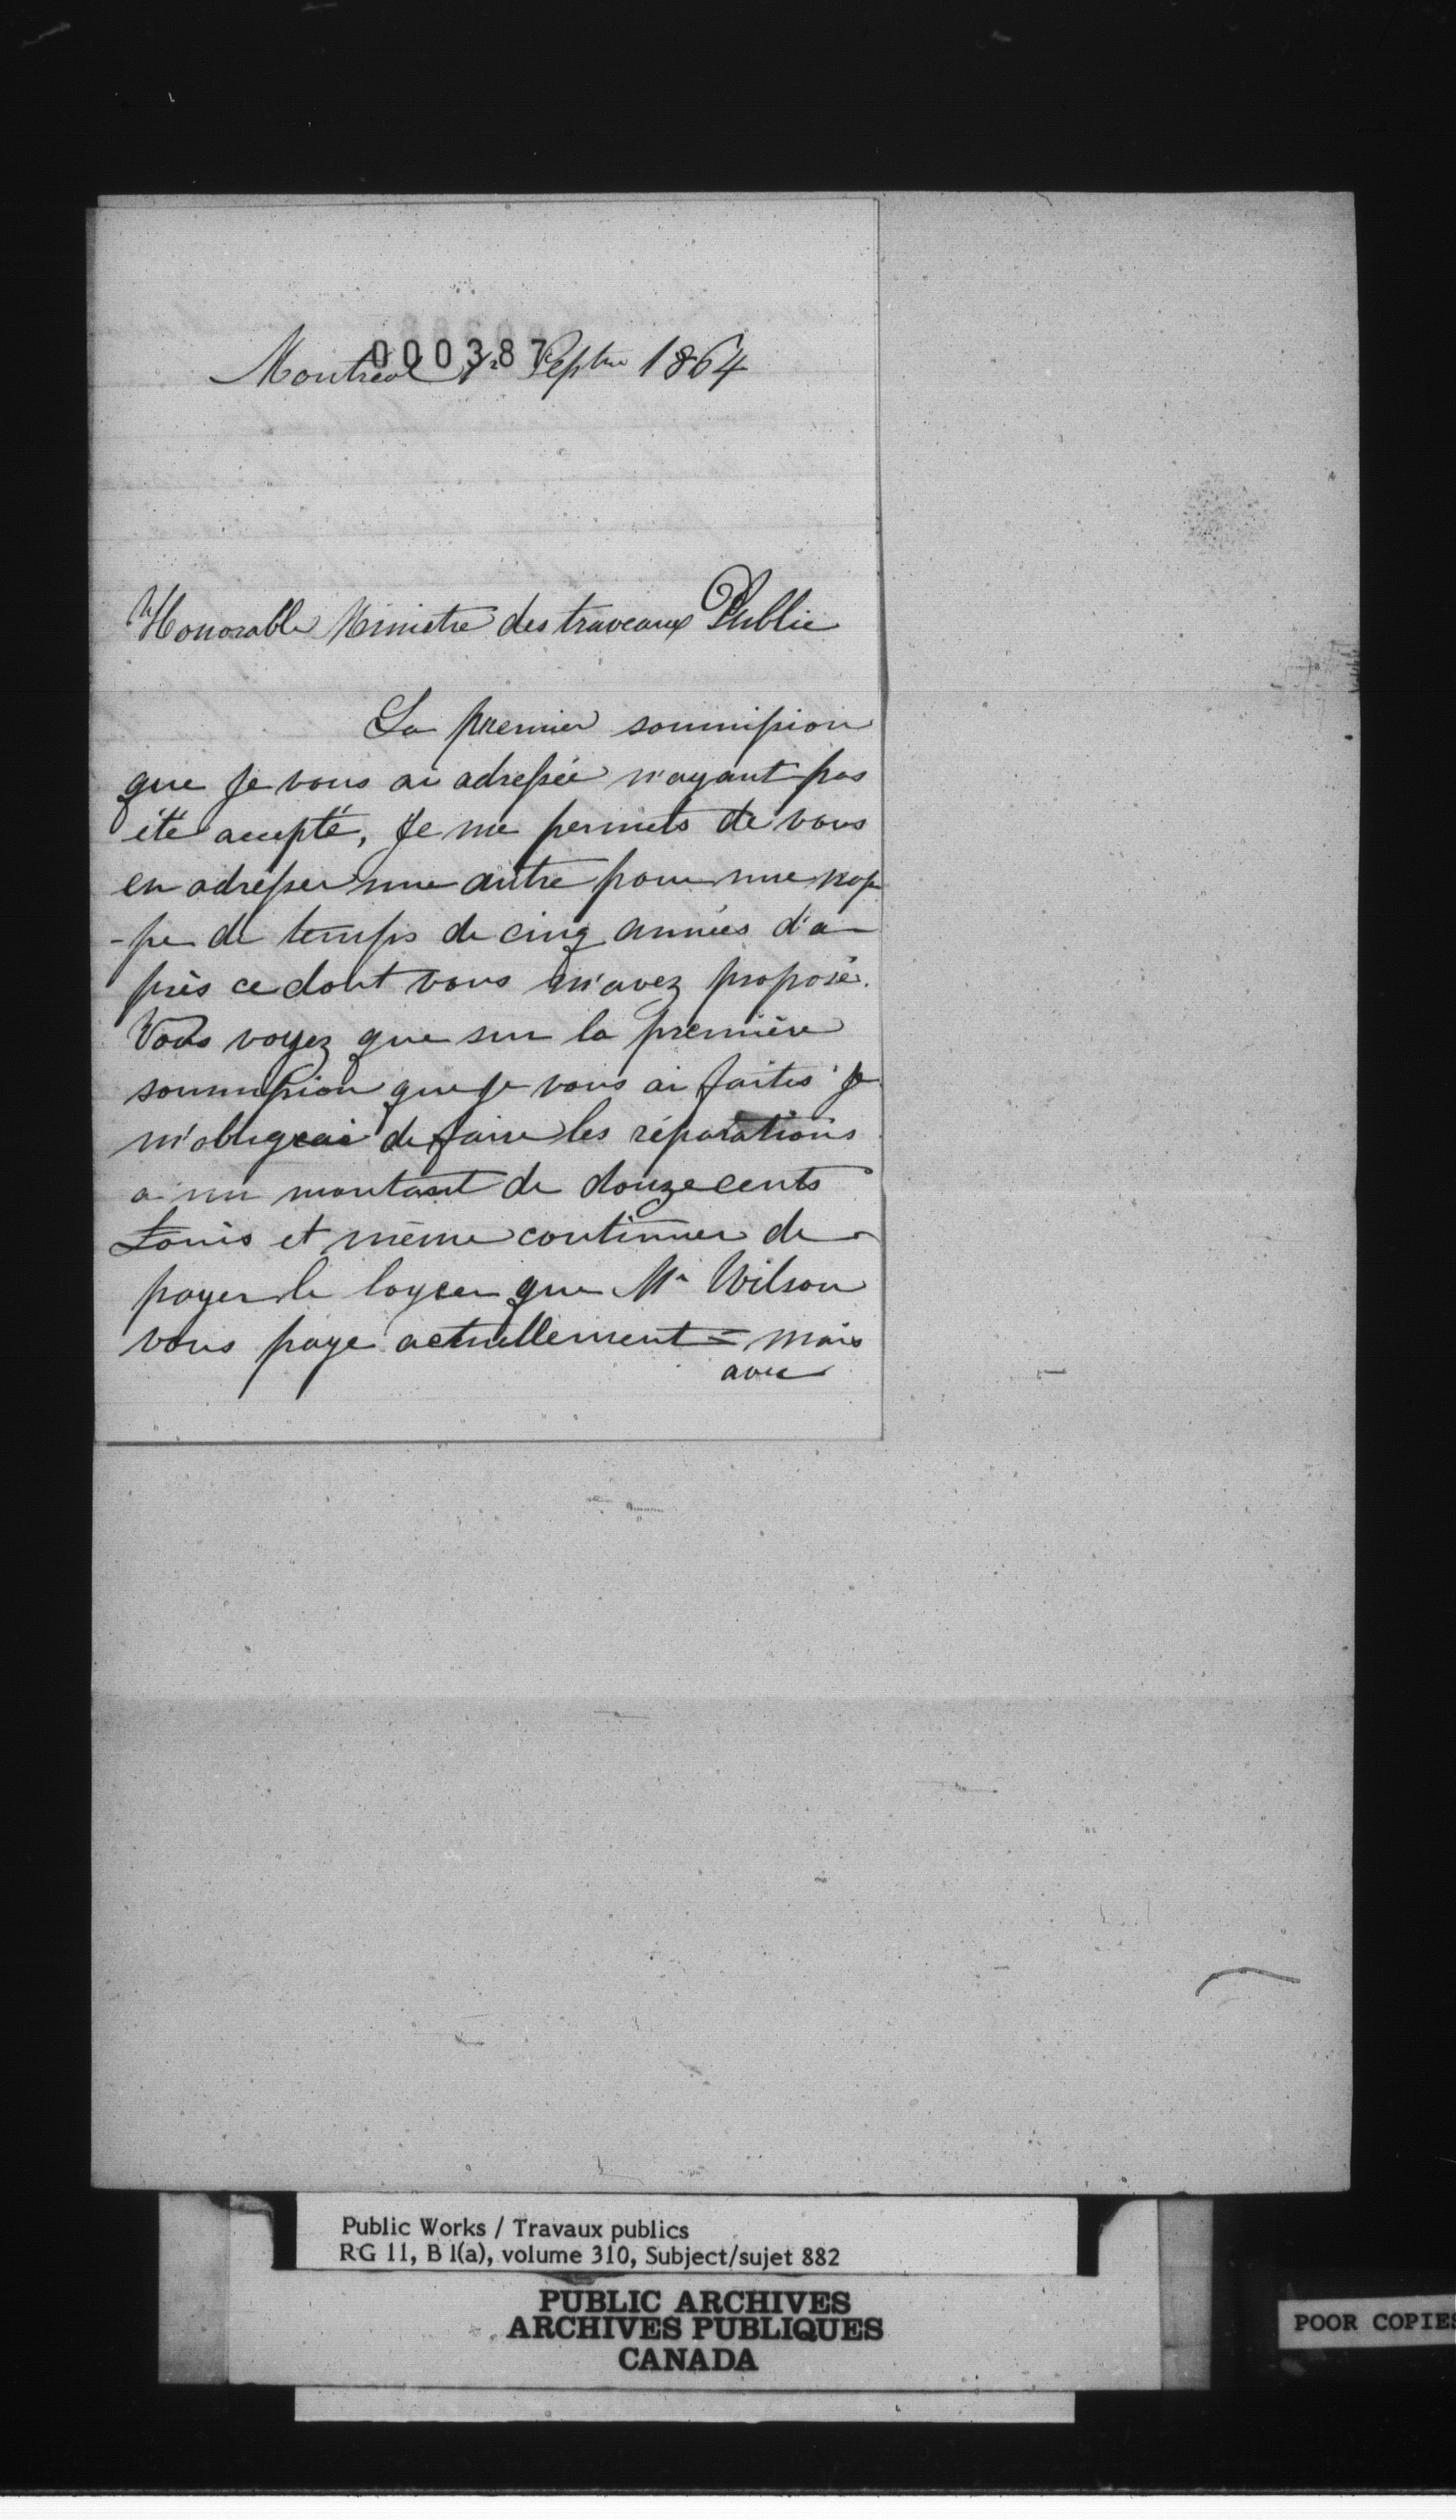 000387
Montreal Septbre 1864
Honorable Ministre des traveaux Public
La premier soumission
que Je vous ai adressée n'ayant pas
été accepté, Je me permets de vous
en adresser une autre pour une
-pe de temps de cinq années d'a-
près ce dont vous m'avez proposé.
Vous voyez que sur la première
soumission que je vous ai faites je
m'obligeai de faire les réparations
a un montant de douze cents
Louis et même continuer de
payer le loyer que Mr Wilson
vous paye actuellement = mais
avec
Public Works / Travaux publics
RG 11, B 1(a), volume 310, Subject/sujet 882
PUBLIC ARCHIVES
ARCHIVES PUBLIQUES
CANADA
POOR COPIES